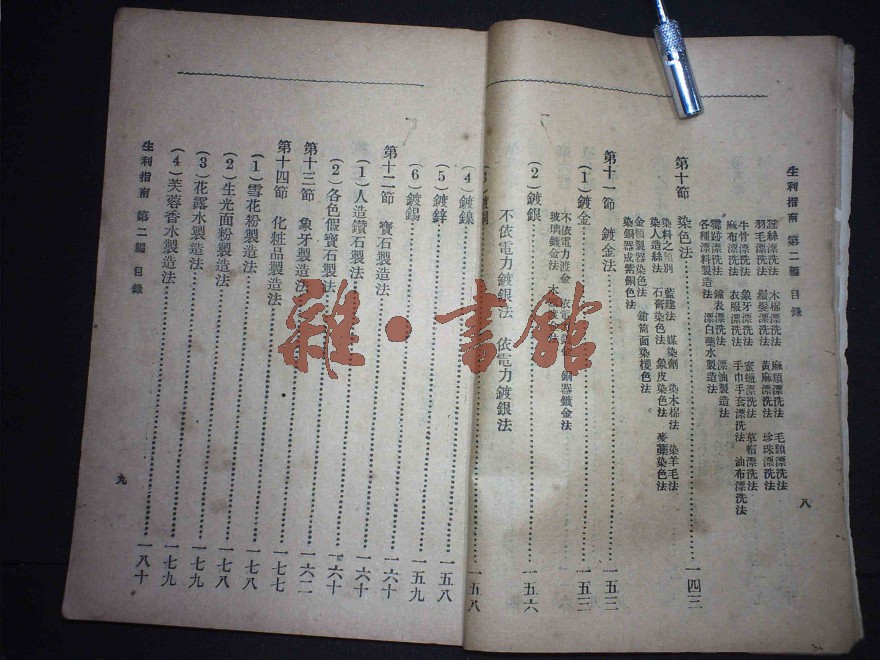 生利指南 第二編 目錄
八
蠶絲漂洗法 木棉漂洗法 麻類漂洗法 毛類漂洗法
羽毛漂洗法 鬚髮漂洗法 黃麻漂洗法 珍珠漂洗法
牛骨漂洗法 象牙漂洗法 蜜蠟漂洗法 草帽漂洗法
麻布漂洗法 衣服漂洗法 手巾手套漂洗法 油布漂洗法
霉跡漂洗法 鐘表漂洗法 漂油製造法
各種漂料製造法 漂白藥水製造法
第十節 染色法 一四三
染料之類別 藍建法 媒染劑 染木棉法 染羊毛法
染人造絲法 石膏染色法 象皮染色法 麥藁染色法
金屬製器染色法 鎗筒面染椶色法
染銅器成紫銅色法
第十一節 鍍金法 一五三
(1)鍍金 一五三
不依電力渡金 依電 銅器鍍金法
玻璃鍍金法 木 鍍金法
(2)鍍銀 一五六
不依電力鍍銀法 依電力鍍銀法
一五八
(4)鍍鎳 一五八
(5)鍍鋅
(6)鍍錫 一五九
第十二節 寶石製造法 一六十
(1)人造鑽石製法 一六十
(2)各色假寶石製法 一六十
第十三節 象牙製造法 一六二
第十四節 化粧品製造法 一七七
(1)雪花粉製造法 一七八
(2)生光面粉製造法 一七八
(3)花露水製造法 一七九
(4)芙蓉香水製造法 一七九
一八十
生利指南 第二編 目錄
九
雜·書館